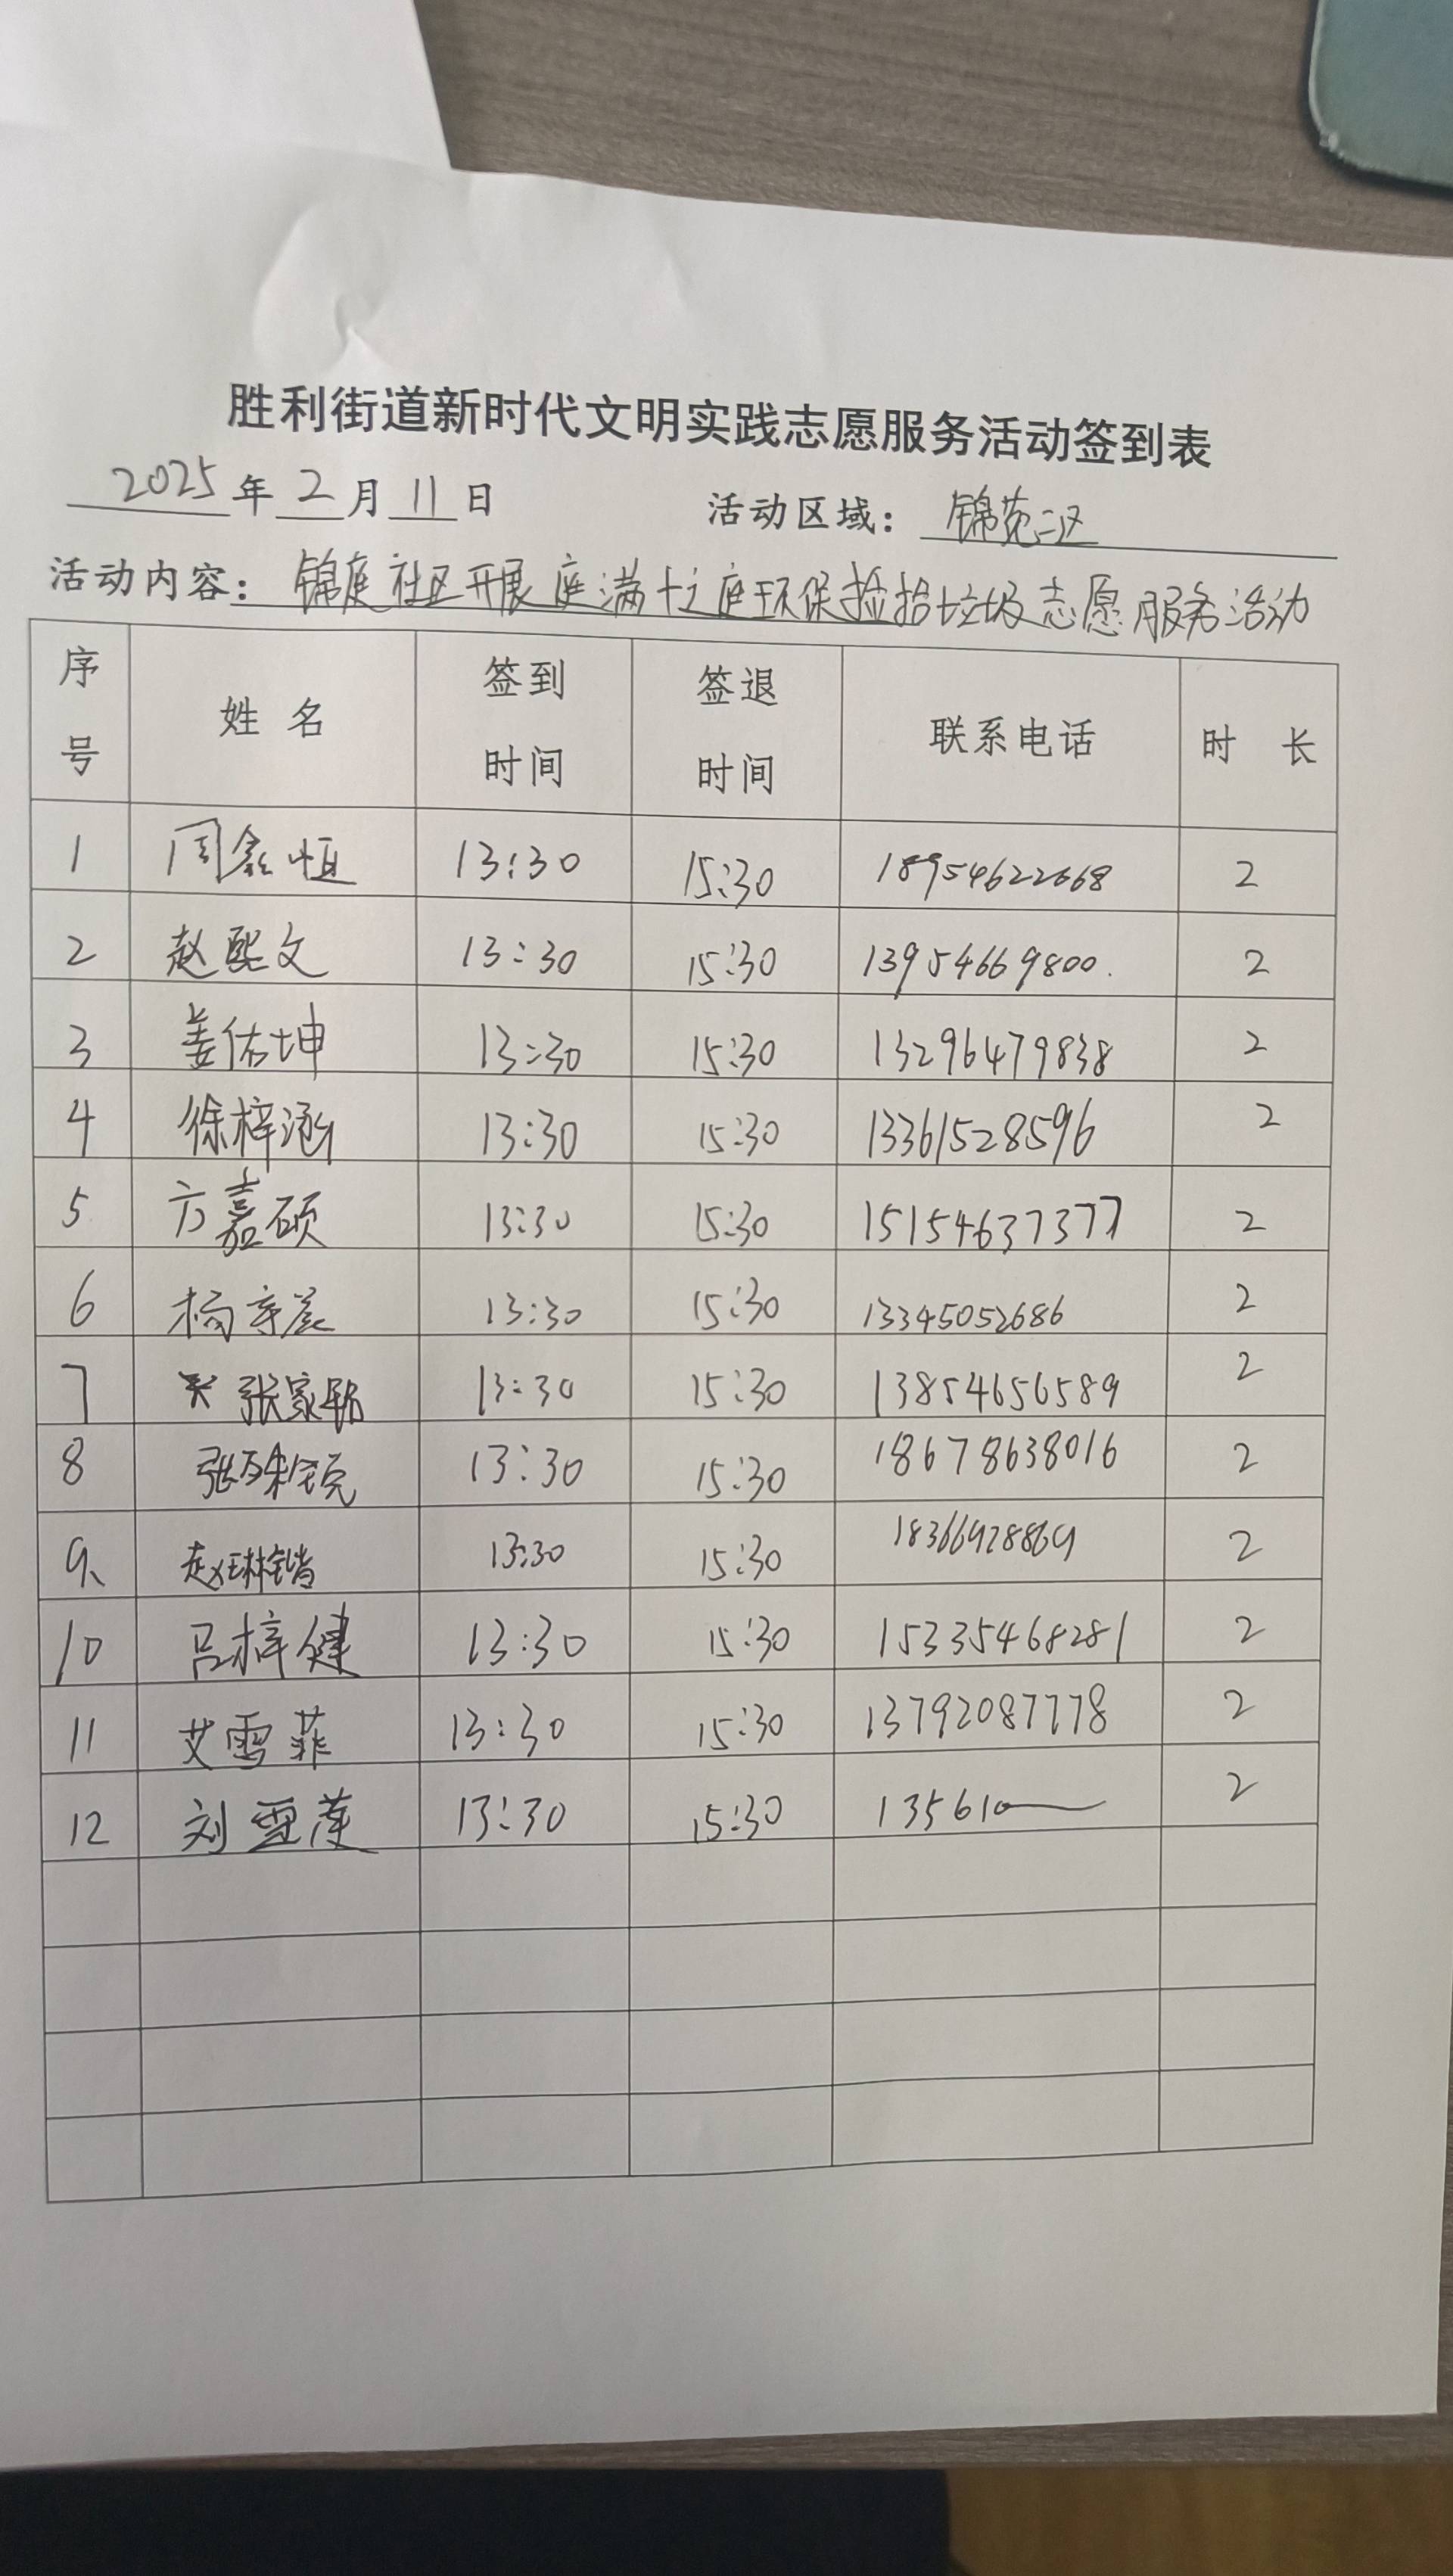 胜利街道新时代文明实践志愿服务活动签到表
2025年2月11日 活动区域: 锦苑二区
活动内容: 锦庭社区开展庭满十之庭环保捡拾垃圾志愿服务活动
序号 姓名 签到时间 签退时间 联系电话 时长
1 周鑫恒 13:30 15:30 18954622668 2
2 赵熙文 13:30 15:30 13954669800. 2
3 姜佑坤 13:30 15:30 13296479838 2
4 徐梓涵 13:30 15:30 13361528596 2
5 方嘉硕 13:30 15:30 15154637377 2
6 杨宗晨 13:30 15:30 13345052686 2
7 张家 13:30 15:30 13854656589 2
8 张 13:30 15:30 18678638016 2
9、 赵琳锴 13:30 15:30 18366928869 2
10 吕梓健 13:30 15:30 15335468281 2
11 艾雪菲 13:30 15:30 13792087778 2
12 刘雪莲 13:30 15:30 135610 2